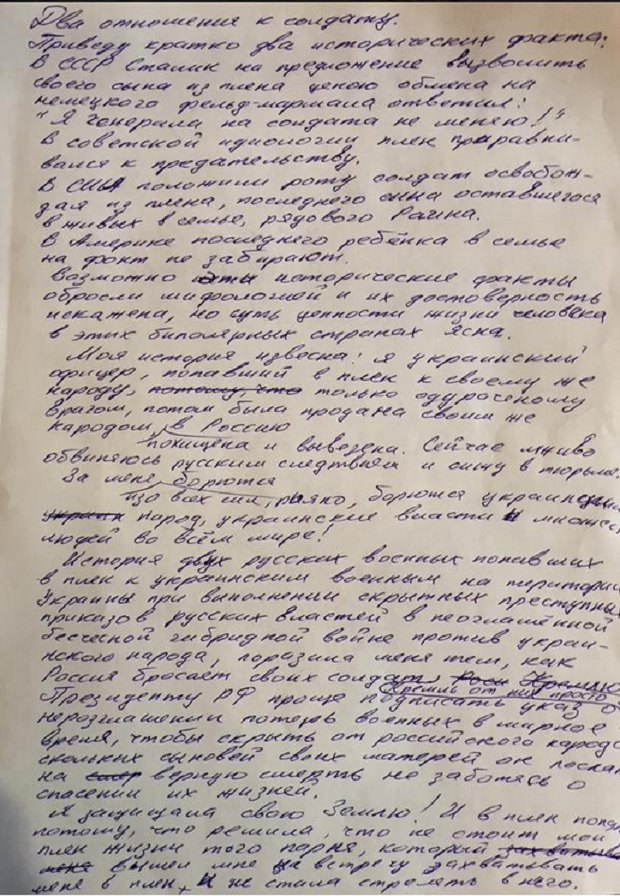 Два отношения к солдату.
Приведу кратко два исторических факта:
В СССР Сталин на предложение вызволить
своего сына из плена ценою обмена на
немецкого фельд-маршала ответил:
"Я генерала на солдата не меняю!"
В советской идиологии плен приравни-
вался к предательству.
В США положили роту солдат освобож-
дая из плена, последнего сына оставшегося
в живых в семье, рядового Раина.
В Америке последнего ребёнка в семье
на фронт не забирают.
Возможно эти исторические факты
обросли мифологией и их достоверность
искажена, но суть ценности жизни человека
в этих биполярных странах ясна.
Моя история извесна! Я украинский
офицер, попавший в плен к своему же
народу, потому что только одураченому
врагом, потом была продана своим же
народом, в Россию
похищена и вывезена. Сейчас лживо
обвиняюсь русским следствием и сижу в тюрьме.
За меня борются
изо всех сил, рьяно, борются украинский
народ, украинские власти и множест
людей во всём мире!
История двух русских военных попавших
в плен к украинским военным на територии
Украины при выполнении скрытных преступных
приказов русских властей в неоглашённой
бесчесной гибридной войне против украи-
нского народа, поразила меня тем, как
Россия бросает своих солдат
Кремль от них просто
Президенту РФ проще подписать указ о
неразглашении потерь военных в мирное
время, чтобы скрыть от российского народа
скольких сыновей своих матерей он послал
на верную смерть не заботясь о
спасении их жизней.
Я защищала свою Землю! И в плен попала
потому, что решила, что не стоит мой
плен жизни того парня, который захватывал
меня вышел мне на встречу захватывать
меня в плен, и не стала стрелять в него.